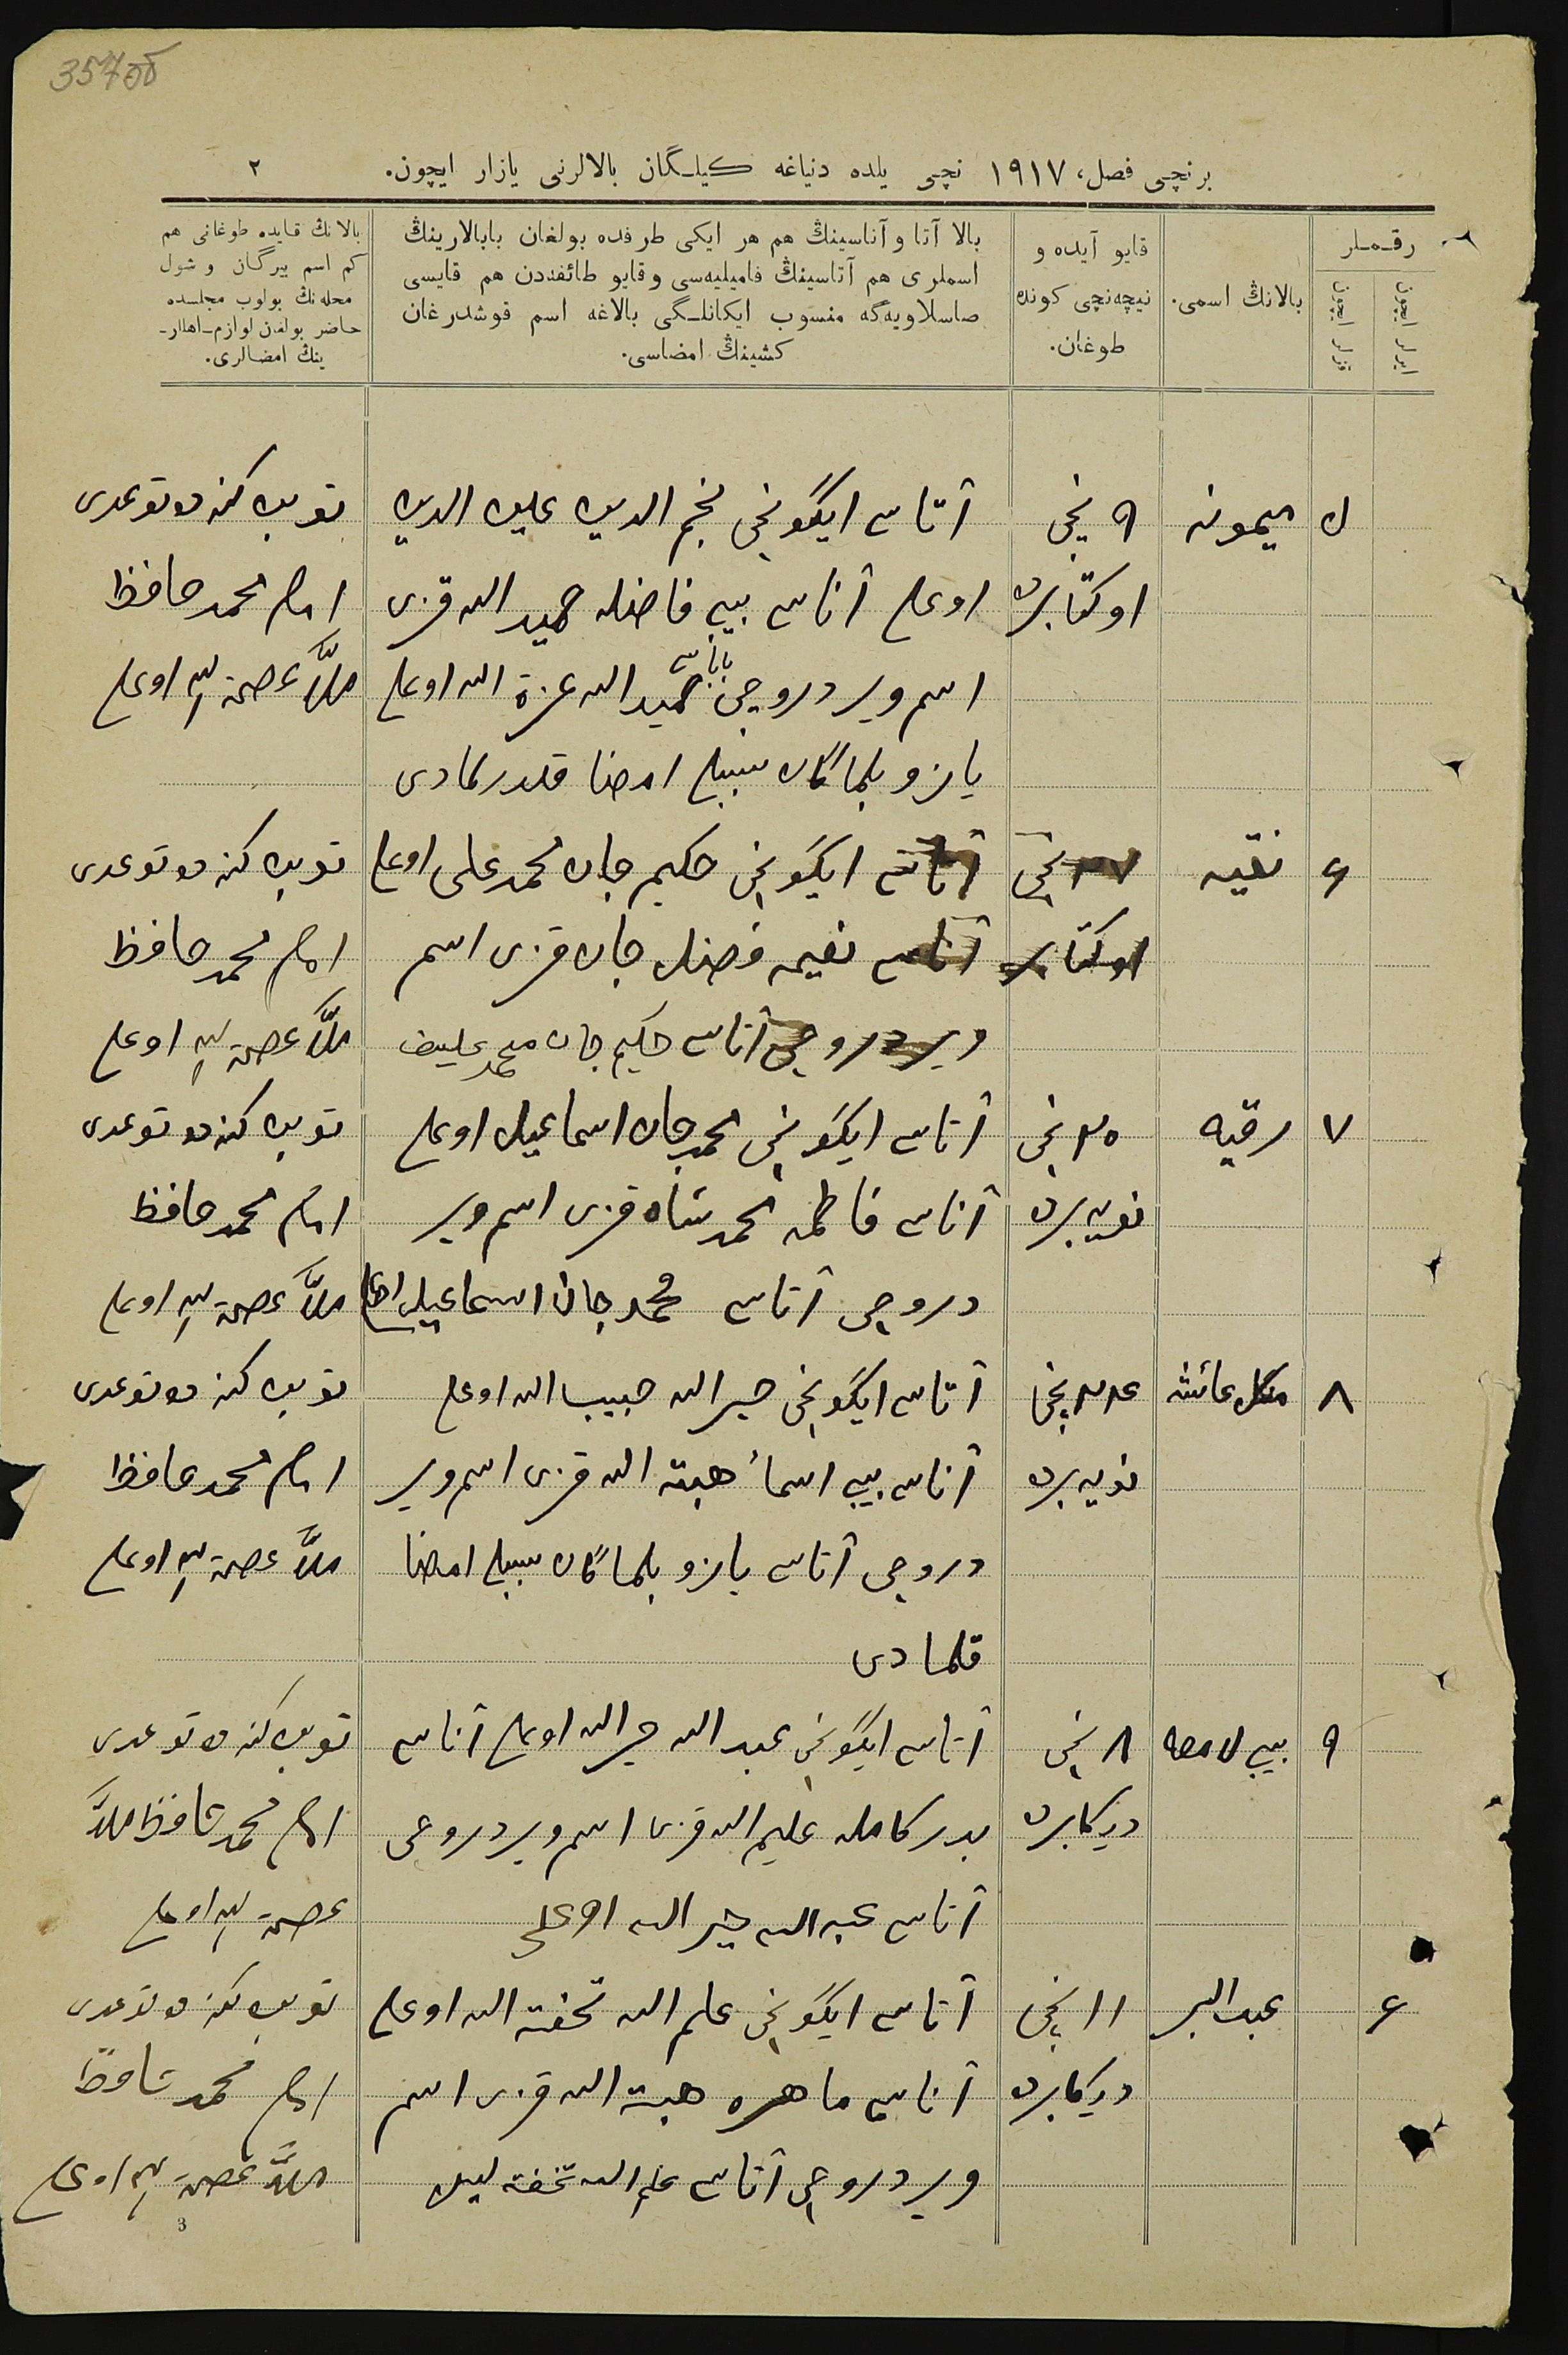 357об
برنچی فصل، ١٩١٧ نچی یلده دنیاغه کیلـگان بالالرنی یازار ایچون.
٢
رقـمـلر
ایرلر ایچون
قزلر ایچون
بالانڭ اسمی.
قایو آیده و
نیچه‌نچی کونده
طوغان.
بالا آتا و آناسینڭ هم هر ایکی طرفده بولغان بابالارینڭ
اسملری هم آتاسینڭ فامیلیه‌سی و قایو طائفه‌دن هم قایسی
صاسلاویه‌گه منسوب ایکانلـگی بالاغه اسم قوشدرغان
کشینڭ امضاسی.
بالانڭ قایده طوغانی هم
کم اسم بیرگان و شول
محله‌نڭ بولوب مجلسده
حاضر بولغان لوازم اهللر-
ینڭ امضالری.
٥
میمونه
٩ نچی
اوکتابرده
آتاسی ایگونچی نجم الدین علیم الدین
اوغلی آناسی بیبی فاضله حمید الله قزی
اسم ویر دروچی باباسی حمید الله عزة الله اوغلی
یازو بلماگان سببلی امضا قلدرلمادی
توبن کنه ده توغدی
امام محمد حافظ
ملّا عصمة الله اوغلی
۶
نقیه
٢٧ نچی
اوکتابرده
آتاسی ایگونچی حکیم جان محمد علی اوغلی
آناسی نعیمه فضل جان قزی اسم
ویر دروچی آتاسی حکیم جان محمد علییف
توبن کنه ده توغدی
امام محمد حافظ
ملّا عصمة الله اوغلی
٧
رقیه
٢٥ نچی
نویه برده
آتاسی ایگونچی محمد جان اسماعیل اوغلی
آناسی فاطمه محمد شاه قزی اسم ویر
دروچی آتاسی محمد جان اسماعیل اوغلی
توبن کنه ده توغدی
امام محمد حافظ
ملّا عصمة الله اوغلی
٨
گل عائشه
٢٤ نچی
نویه برده
آتاسی ایگونچی خیر الله حبیب الله اوغلی
آناسی بیبی اسماء هبة الله قزی اسم ویر
دروچی آتاسی یازو بلماگان سببلی امضا
قلمادی
توبن کنه ده توغدی
امام محمد حافظ
ملّا عصمة الله اوغلی
٩
بیبی لامعه
٨ نچی
دیکابرده
آتاسی ایگونچی عبد الله خیر الله اوغلی آناسی
بدر کامله علیم الله قزی اسم ویر دروچی
آتاسی عبد الله خیر الله اوغلی
توبن کنه ده توغدی
امام محمد حافظ ملّا
عصمة الله اوغلی
۶
عبد البر
١١ نچی
دیکابرده
آتاسی ایگونچی علم الله تحفة الله اوغلی
آناسی ماهره هبة الله قزی اسم
ویر دروچی آتاسی علم الله تحفة لیل
توبن کنه ده توغدی
امام محمد حافظ
ملّا عصمة الله اوغلی
3